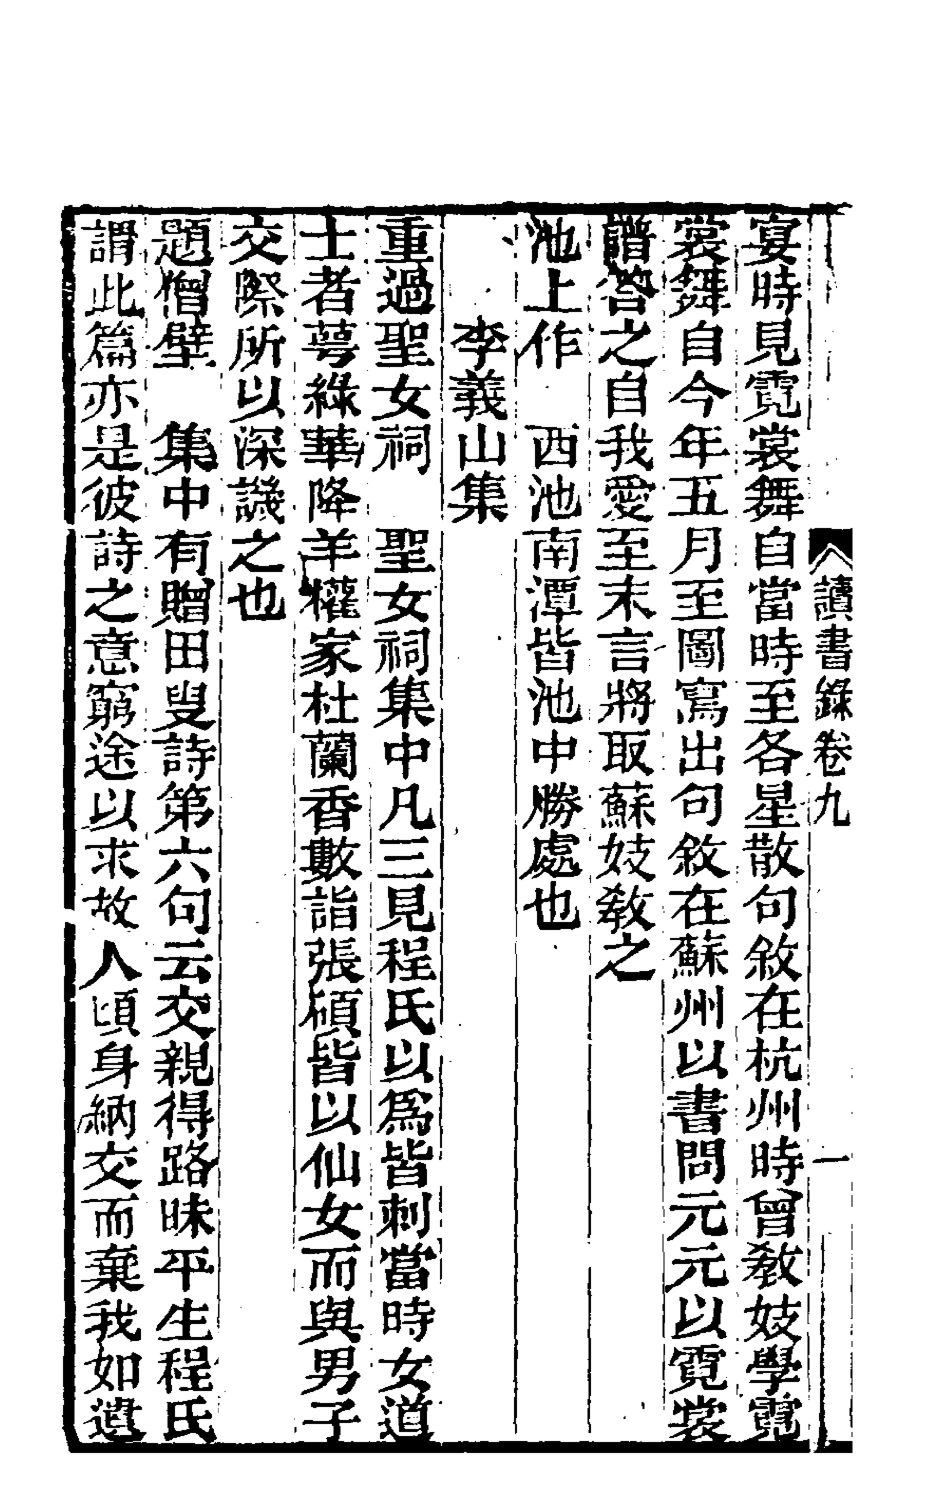 讀書錄卷九
一
宴時見霓裳舞自當時至各星散句敘在杭州時曾敎妓學霓
裳舞自今年五月至圖寫出句敘在蘇州以書問元元以霓裳
譜答之自我愛至末言將取蘇妓敎之
池上作　西池南潭皆池中勝處也
李義山集
重過聖女祠　聖女祠集中凡三見程氏以爲皆刺當時女道
士者萼綠華降羊權家杜蘭香數詣張碩皆以仙女而與男子
交際所以深譏之也
題僧壁　集中有贈田叟詩第六句云交親得路昧平生程氏
謂此篇亦是彼詩之意窮途以求故人頃身納交而棄我如遺